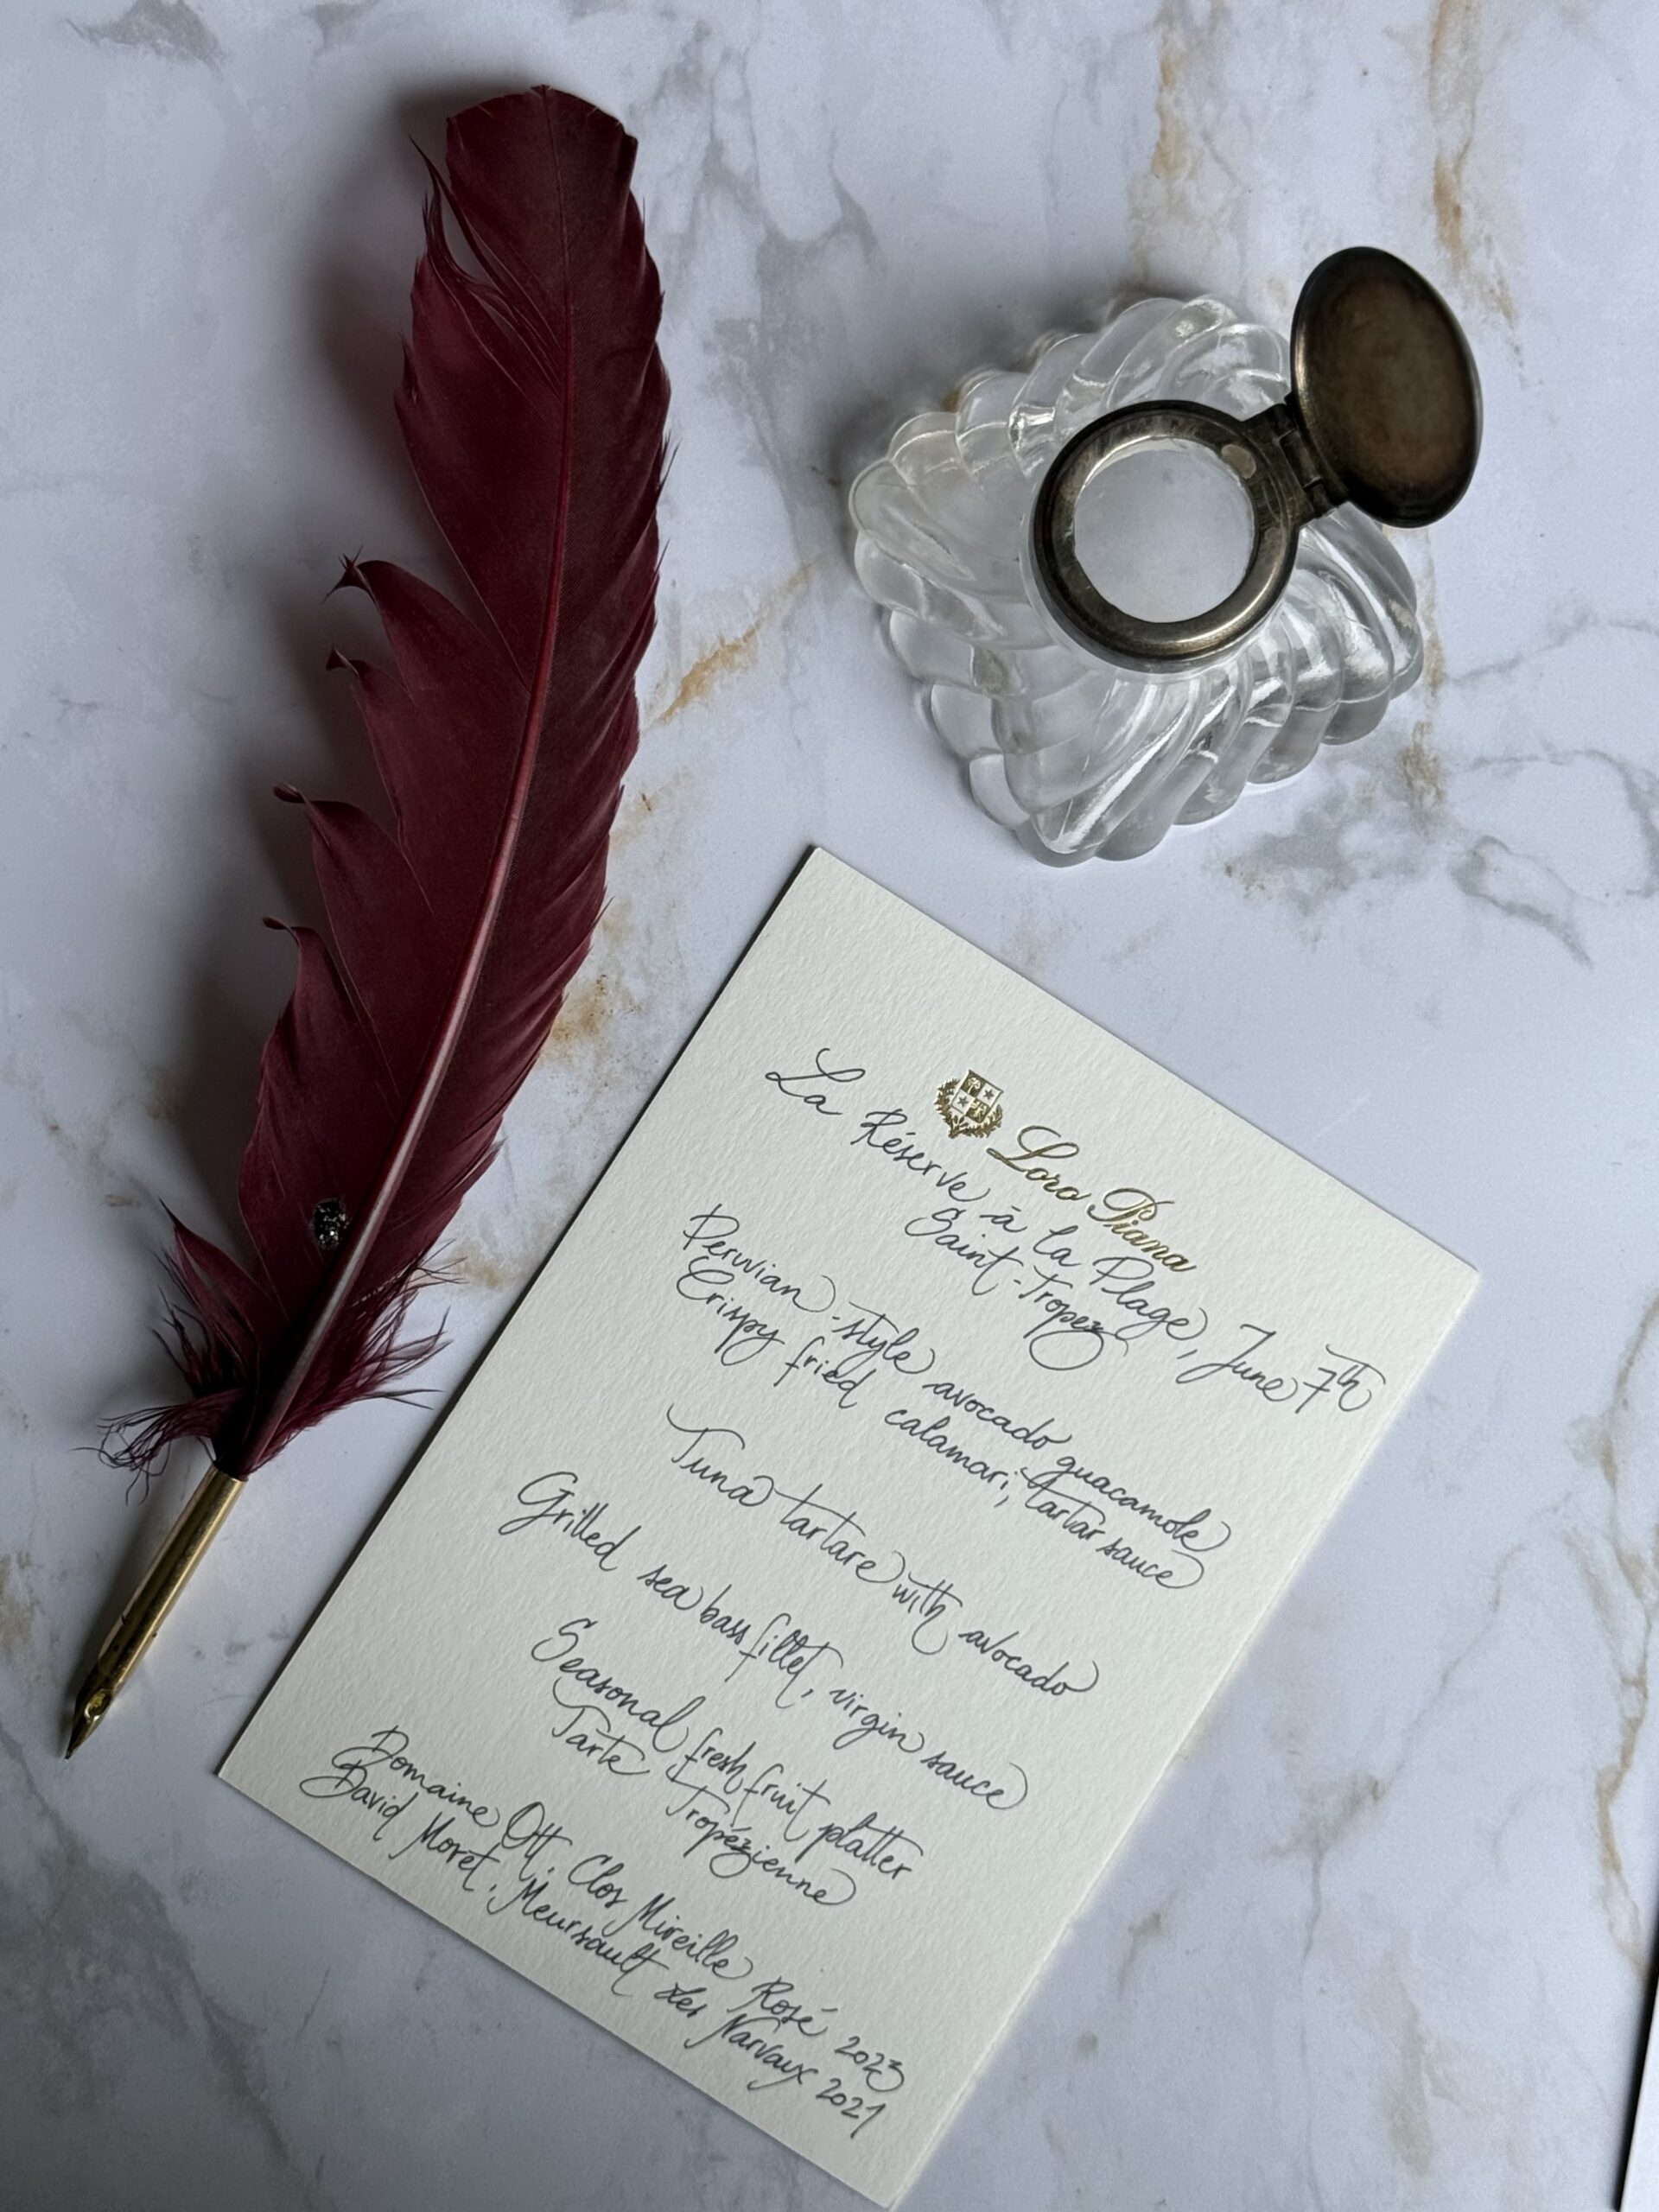 Loro Piana
La Réserve à la Plage, June 7th
Saint-Tropez
Peruvian-style avocado guacamole
Crispy fried calamari, tartar sauce
Tuna tartare with avocado
Grilled sea bass fillet, virgin sauce
Seasonal fresh fruit platter
Tarte Tropézienne
Domaine Ott, Clos Mireille Rosé 2023
David Moret, Meursault Les Narvaux 2021